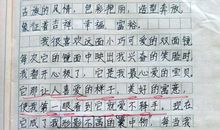 古族的风情，色彩艳丽、造型奔放
象征着吉祥、幸福、富裕。
我很喜欢这面小巧可爱的双面镜
每次它的镜面中映出我兴奋的笑脸时
我都开心极了，它是我最心爱的宝贝，
它那让人喜爱的样子，美好的寓意，
使我第一眼看到它就爱不释手。现在
它成了我形影不离的 中物，每当我